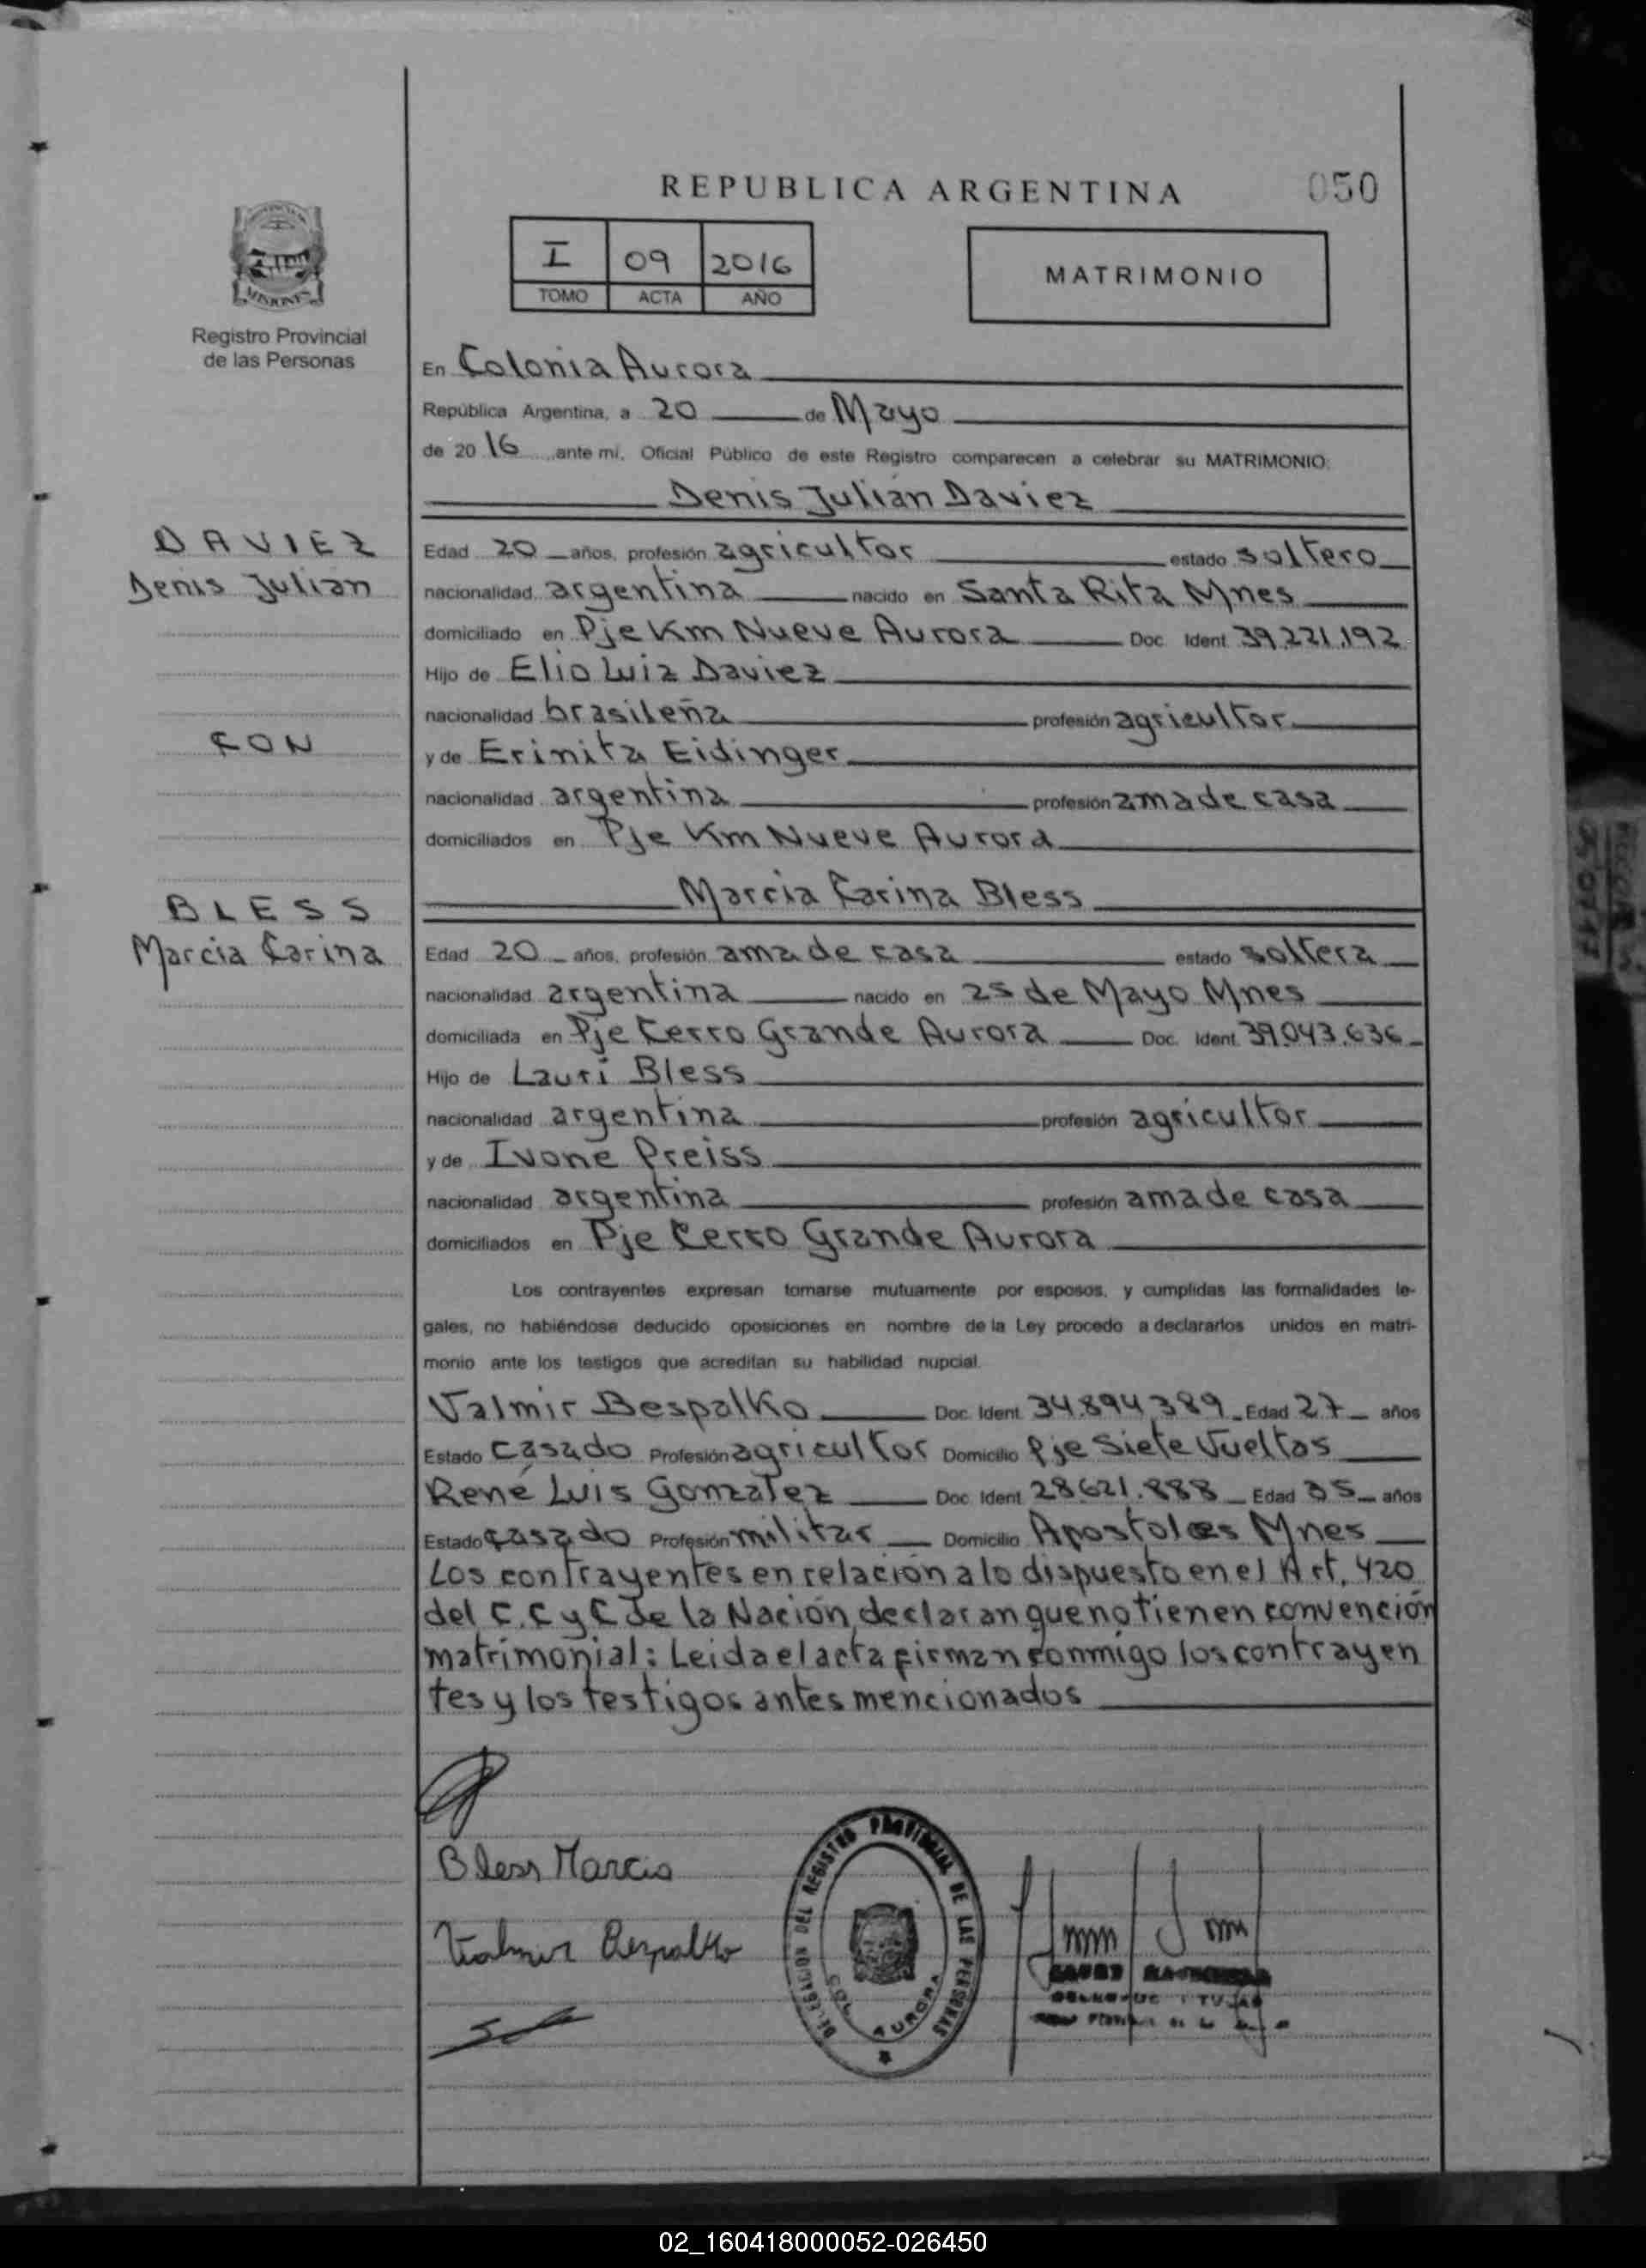 REPUBLICA ARGENTINA
050
MISIONES
Registro Provincial
de las Personas
I 09 2016
TOMO ACTA AÑO
MATRIMONIO
En Colonia Aurora
República Argentina, a 20 de Mayo
de 2016 ante mí, Oficial Público de este Registro comparecen a celebrar su MATRIMONIO:
Denis Julián Daviez
DAVIEZ
Denis Julián
Edad 20 años, profesión agricultor estado soltero
nacionalidad argentina nacido en Santa Rita Mnes
domiciliado en Pje Km Nueve Aurora Doc. Ident. 39.221.192
Hijo de Elio Luiz Daviez
nacionalidad brasileña profesión agricultor
CON
y de Erinita Eidinger
nacionalidad argentina profesión ama de casa
domiciliados en Pje Km Nueve Aurora
Marcia Carina Bless
BLESS
Marcia Carina
Edad 20 años, profesión ama de casa estado soltera
nacionalidad argentina nacido en 25 de Mayo Mnes
domiciliada en Pje Cerro Grande Aurora Doc. Ident. 39.043.636
Hijo de Lauri Bless
nacionalidad argentina profesión agricultor
y de Ivone Preiss
nacionalidad argentina profesión ama de casa
domiciliados en Pje Cerro Grande Aurora
Los contrayentes expresan tomarse mutuamente por esposos, y cumplidas las formalidades le-
gales, no habiéndose deducido oposiciones en nombre de la Ley procedo a declararlos unidos en matri-
monio ante los testigos que acreditan su habilidad nupcial.
Valmir Bespalko Doc. Ident. 34.894.389 Edad 27 años
Estado casado Profesión agricultor Domicilio Pje Siete Vueltas
René Luis Gonzalez Doc. Ident. 28.621.888 Edad 35 años
Estado casado Profesión militar Domicilio Apostoles Mnes
Los contrayentes en relación a lo dispuesto en el Art. 420
del C.C y C de la Nación, declaran que no tienen convención
matrimonial: Leida el acta firman conmigo los contrayen
tes y los testigos antes mencionados
Bless Marcia
Valmir Bespalko
DELEGACION DEL REGISTRO PROVINCIAL DE LAS PERSONAS
COL. AURORA
02_160418000052-026450